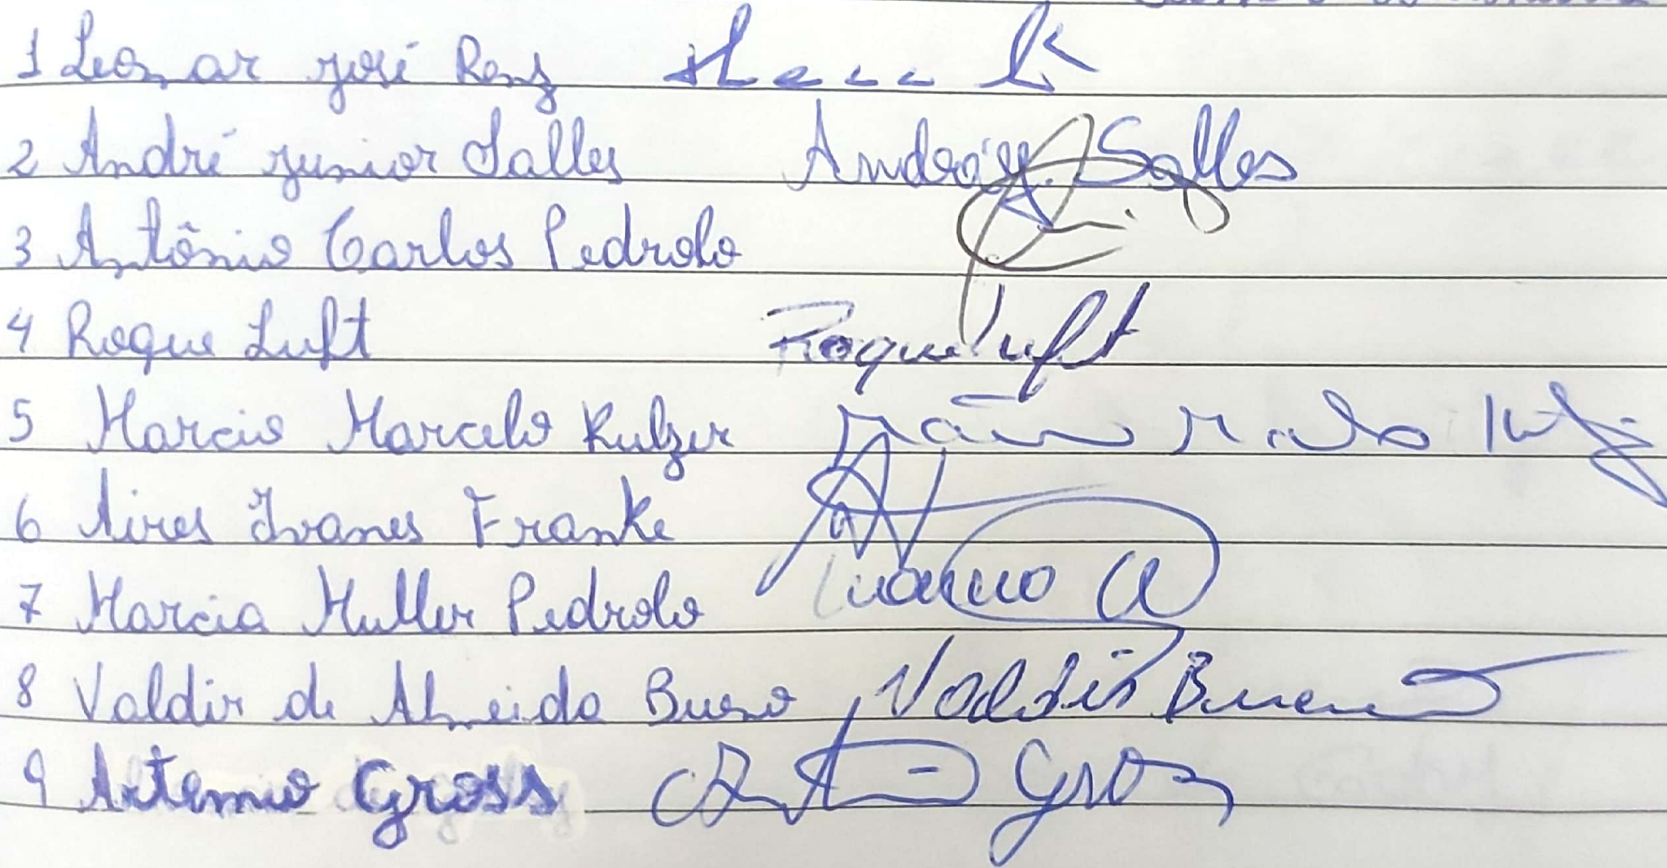 1 Leomar José Renz
2 André Junior Salles André J. Salles
3 Antônio Carlos Pedrolo
4 Roque Luft Roque Luft
5 Marcio Marcelo Kulzer
6 Aires Ivanes Franke
7 Marcia Muller Pedrolo
8 Valdir de Almeida Bueno Valdir Bueno
9 Artemio Gross Gross